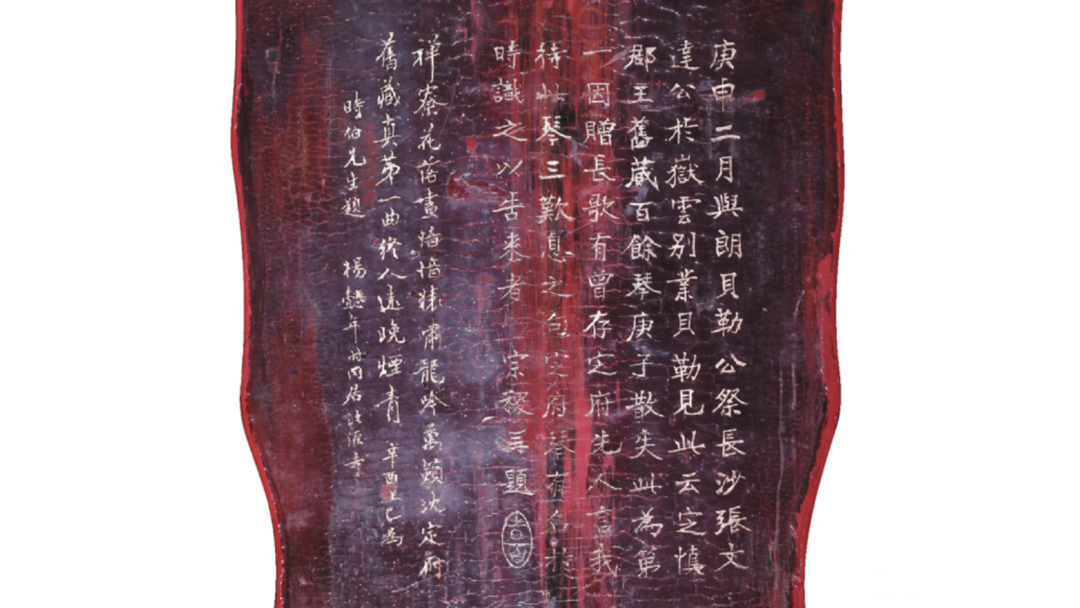 庚申二月與朗貝勒公祭長沙張文
達公於嶽雲別業貝勒見此云定慎
郡王舊蔵百餘琴庚子散失此為第
一因贈長歌有曾存定府先人言我
待此琴三歎息之句定府琴有名於
時識之以告来者 宗稷再題
禅寮花落晝愔愔猿啸龍吟萬籟沈定府
舊藏真第一曲終人遠晚煙青 辛酉上巳為
時伯先生題 楊懿年時同居法源寺